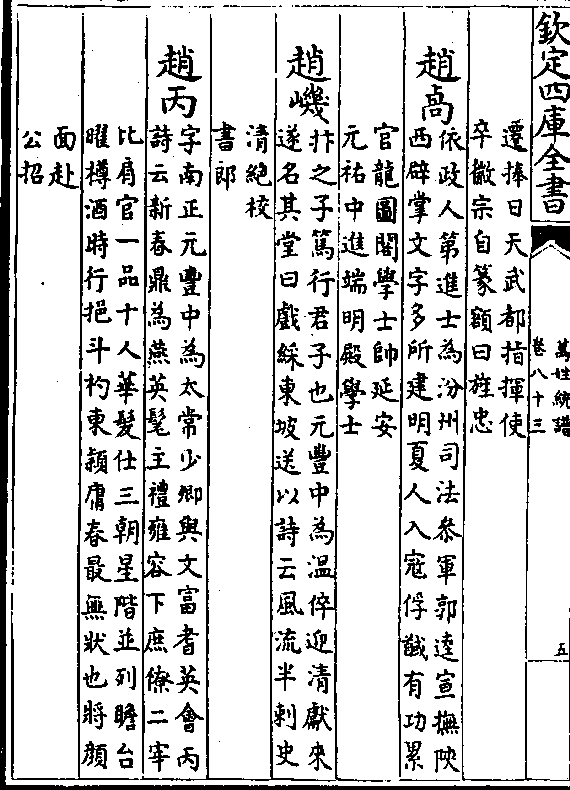 欽定四庫全書
萬姓統譜
卷八十三
五
遷捧日天武都指揮使
卒徽宗自篆額曰旌忠
趙卨
依政人第進士為汾州司法叅軍郭逵宣撫陜
西辟掌文字多所建明夏人入寇俘馘有功累
官龍圖閣學士帥延安
元祐中進端明殿學士
趙
抃之子篤行君子也元豐中為溫倅迎清獻來
遂名其堂曰戲綵東坡送以詩云風流半刺史
清絶校
書郎
趙丙
字南正元豐中為太常少卿與文富耆英會丙
詩云新春鼎為燕英髦主禮雍容下庶僚二宰
比肩官一品十人華髮仕三朝星階並列瞻台
曜樽酒時行挹斗杓東潁庸春最無狀也將顔
面赴
公招